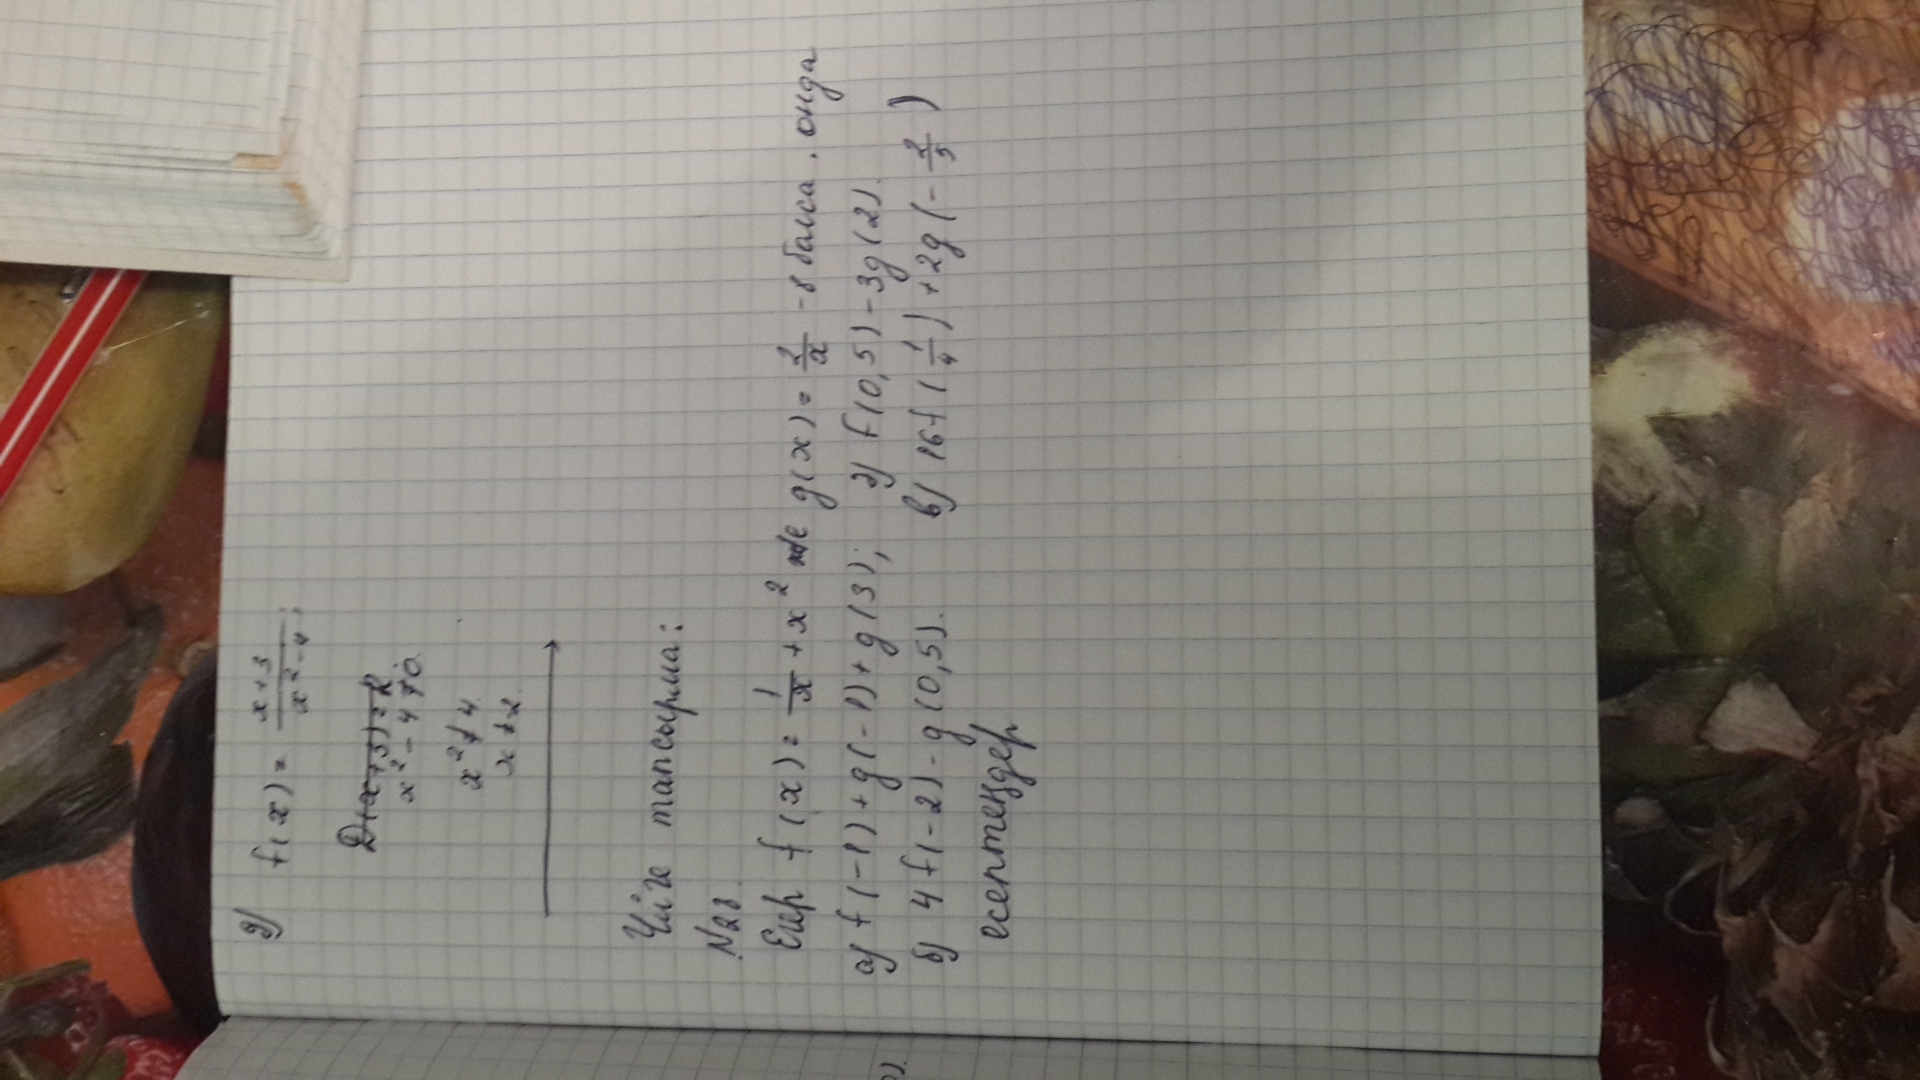 д) f(x) = \frac{x+3}{x^2-4};
D(x+3)=R
x^2 - 4 ≠ 0.
x^2 ≠ 4
x ≠ 2
Үйге тапсырма:
N28.
Егер f(x) = \frac{1}{x} + x^2 және g(x) = \frac{2}{x} - 8 болса, онда
а) f(-1) + g(-1) + g(3); ә) f(0,5) - 3g(2).
б) 4f(-2) - g(0,5). в) 16f(\frac{1}{4}) + 2g(-\frac{2}{5})
есептеңдер